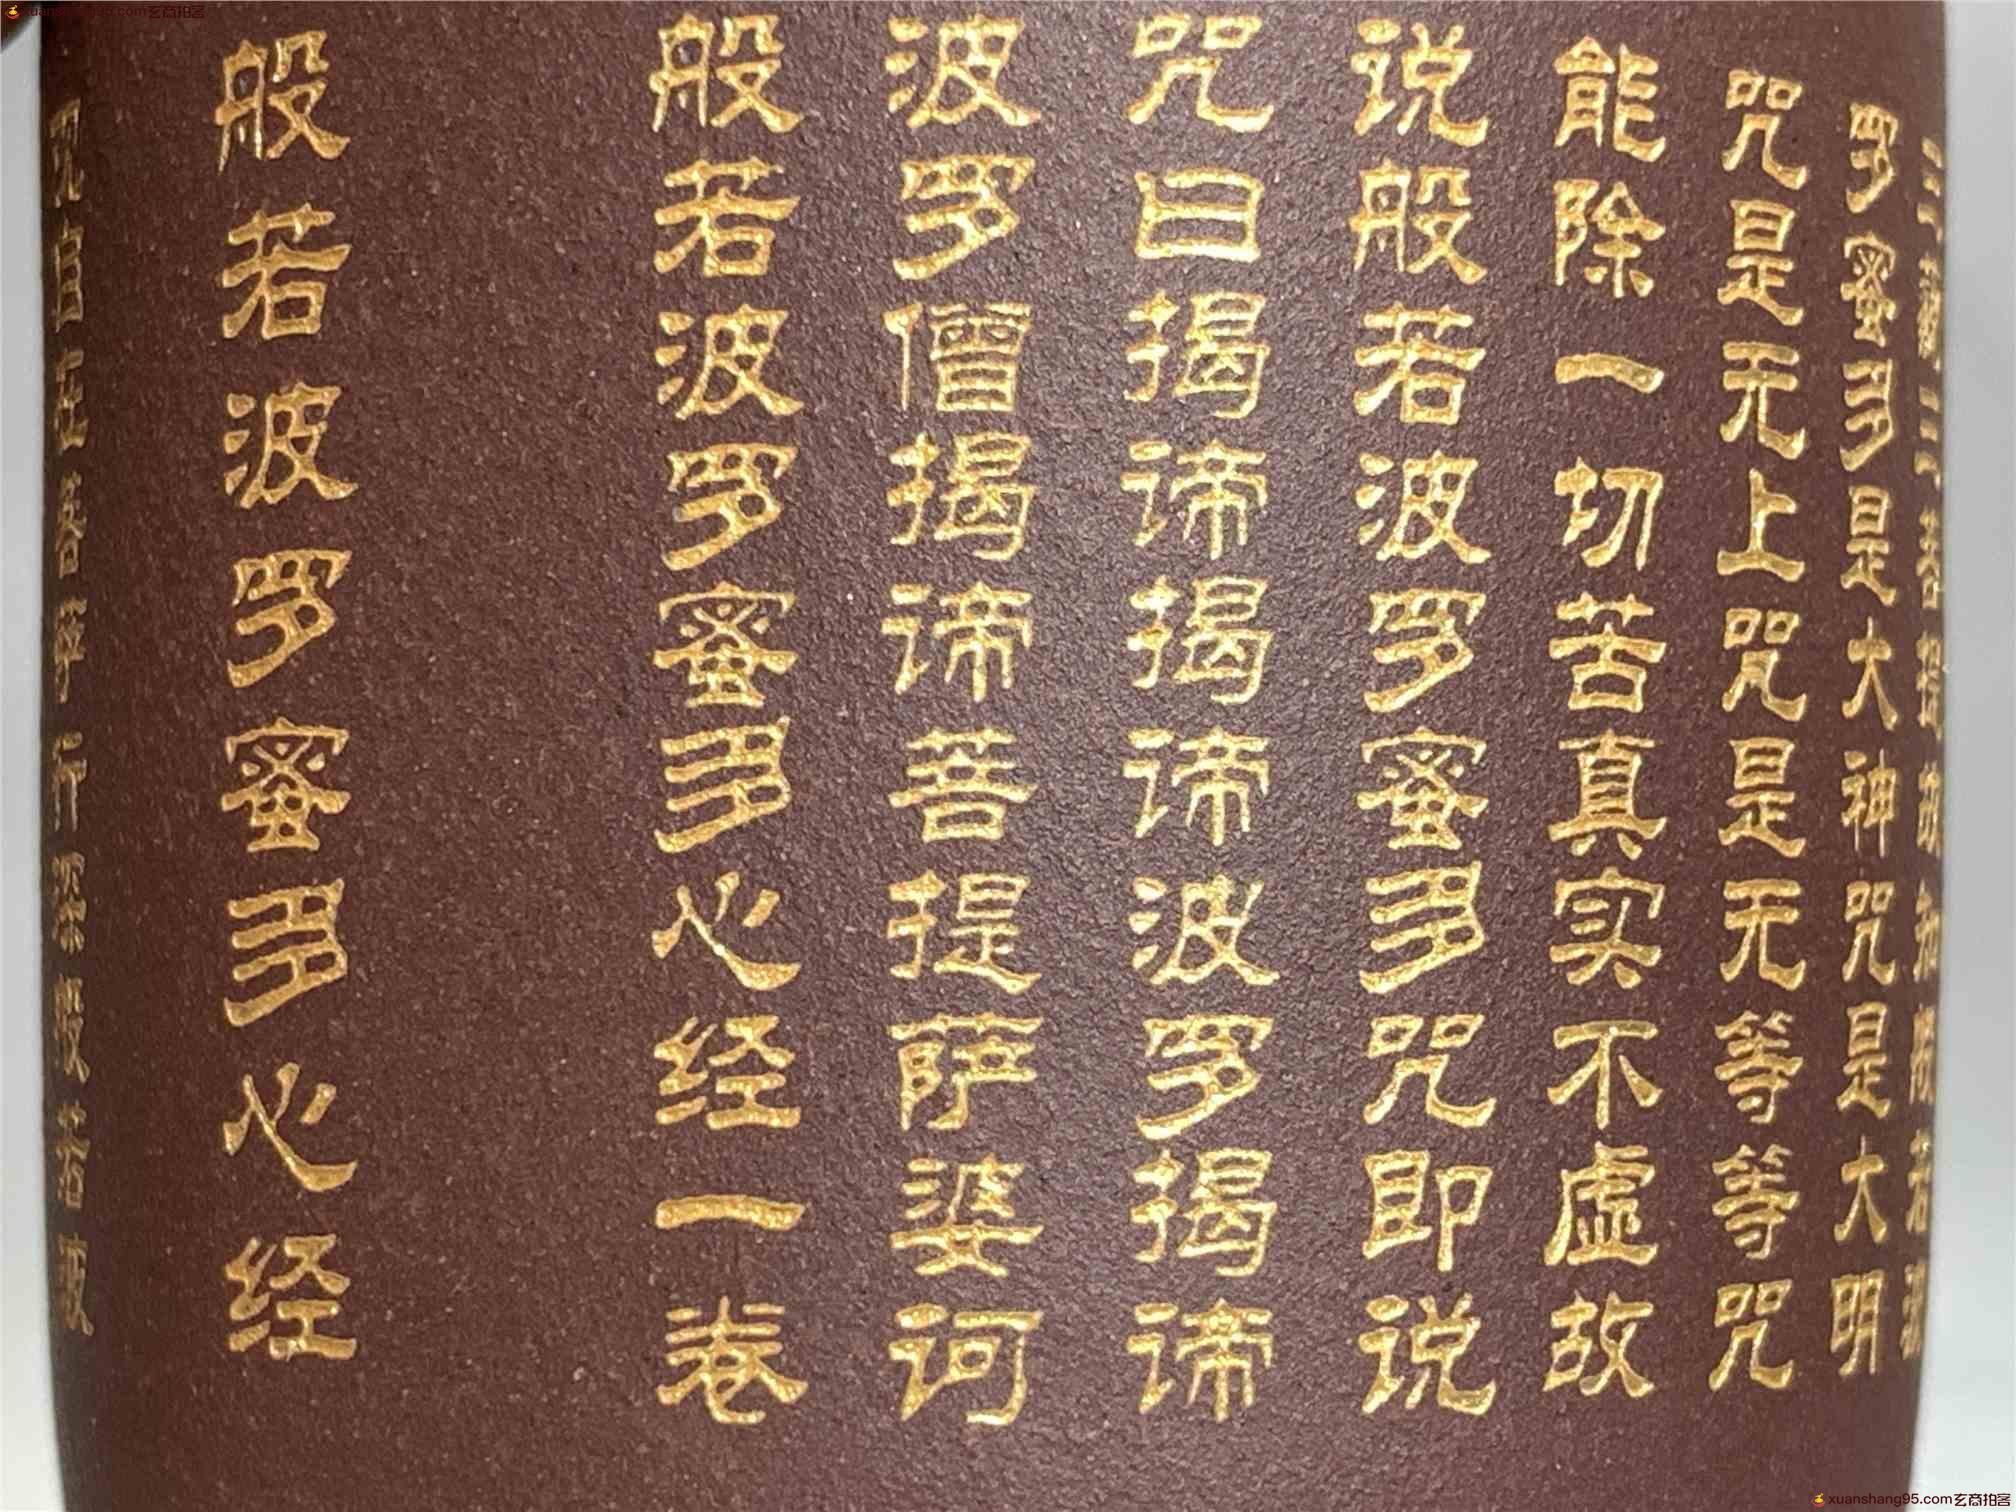 三藐三菩提故知般若波
罗蜜多是大神咒是大明
咒是无上咒是无等等咒
能除一切苦真实不虚故
说般若波罗蜜多咒即说
咒曰揭谛揭谛波罗揭谛
波罗僧揭谛菩提萨婆诃
般若波罗蜜多心经一卷
般若波罗蜜多心经
观自在菩萨行深般若波
xuanshang95.com玄商拍客
xuanshang95.com玄商拍客